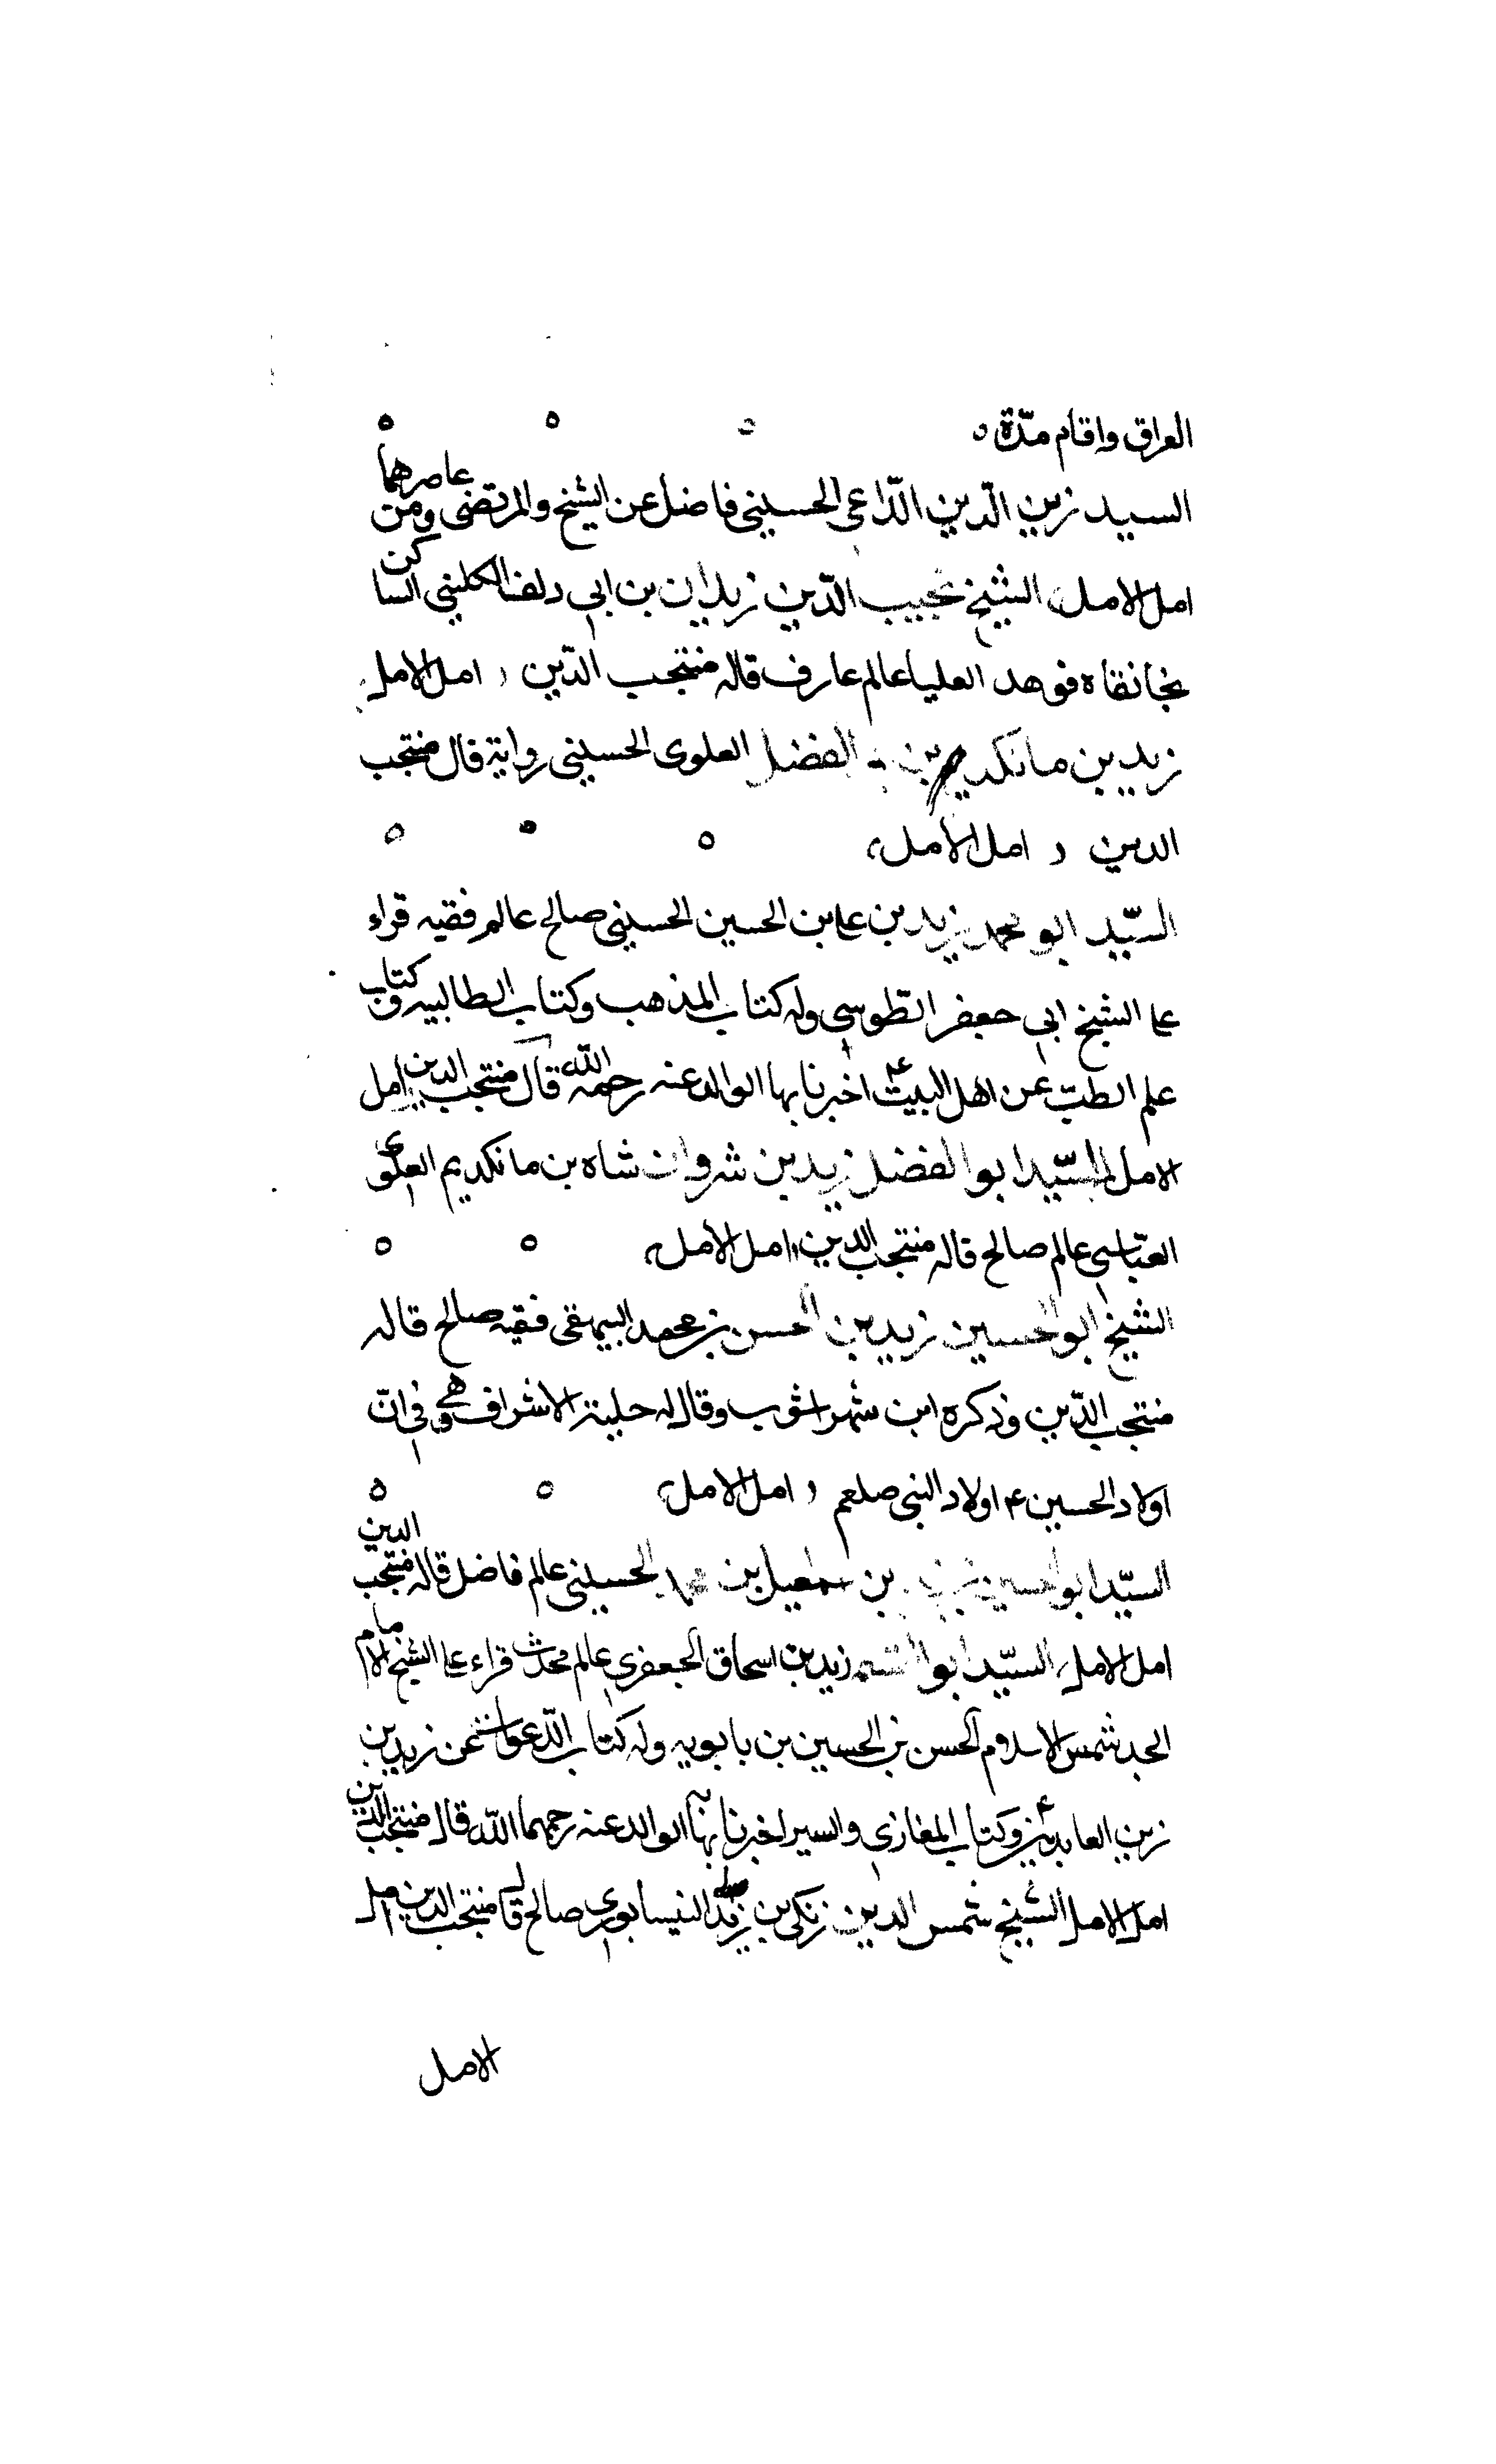 العراق واقام مدّة
السيد زين الدين الدّاعي الحسيني فاضل عن الشيخ والمرتضى ومن عاصرهما
امل الامل الشيخ نجيب الدّين زيدان بن ابي دلف الكليني الساكن
بخانقاه فوهد العليا عالم عارف قاله منتجب الدّين امل الامل
زيد بن مانكديم بن الفضل العلوى الحسيني رواية قال منتجب
الدين امل الامل
السّيد ابو محمد زيد بن علي بن الحسين الحسيني صالح عالم فقيه قراء
على الشيخ ابي جعفر الطّوسي وله كتاب المذهب وكتاب الطالبيه وكتاب
علم الطب عن اهل البيت ع اخبرنا بها الوالد عنه رحمه الله قال منتجب الدين امل
الامل السّيد ابو الفضل زيد بن شروان شاه بن مانكديم العلوى
العبّاسي عالم صالح قاله منتجب الدين امل الامل
الشيخ ابو الحسين زيد بن الحسن بن محمد البيهقي فقيه صالح قاله
منتجب الدّين وذكره ابن شهراشوب وقال له حلية الاشراف وهي في انّ
اولاد الحسين ع اولاد النبي صلعم امل الامل
السيّد ابو الحسين بن اسمعيل بن محمد الحسيني عالم فاضل قاله منتجب الدين
امل الامل السيّد ابو القسم زيد بن اسحاق الجعفري عالم محدث قراء على الشيخ الامام
الجد شمس الاسلام الحسن بن الحسين بن بابويه وله كتاب الدّعوات عن زيد بن
زين العابدين ع وكتاب المغازى والسير اخبرنا بها الوالد عنه رحمهما الله قال منتجب الدين
امل الامل الشيخ شمس الدين زنكي بن النيسابوري صالح قاله منتجب الدين امل
الامل